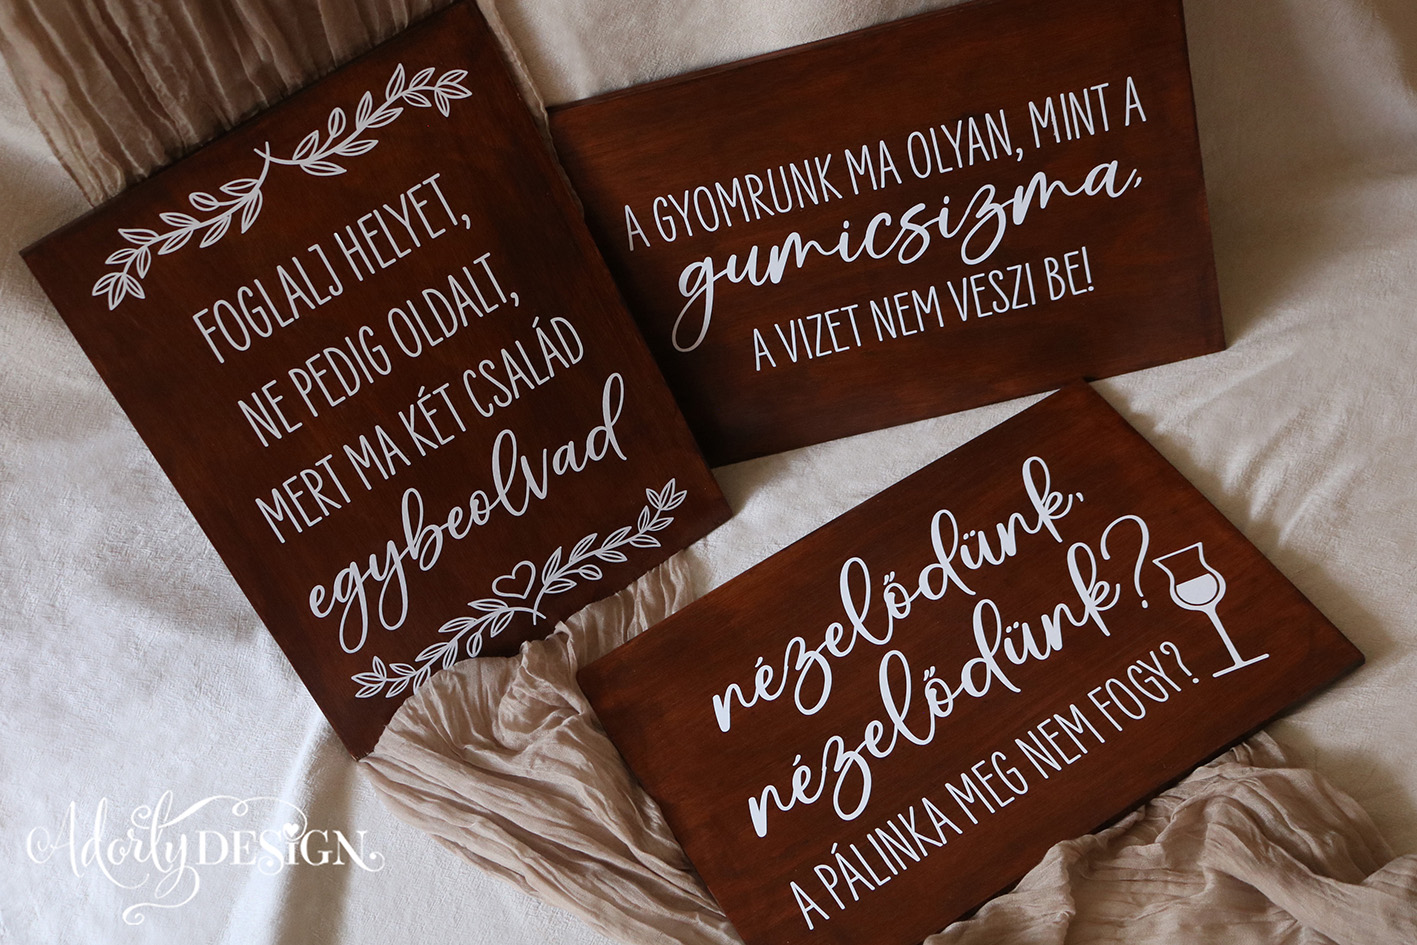 FOGLALJ HELYET,
NE PEDIG OLDALT,
MERT MA KÉT CSALÁD
egybeolvad
A GYOMRUNK MA OLYAN, MINT A
gumicsizma,
A VIZET NEM VESZI BE!
nézelődünk,
nézelődünk?
A PÁLINKA MEG NEM FOGY?
Adorly DESIGN